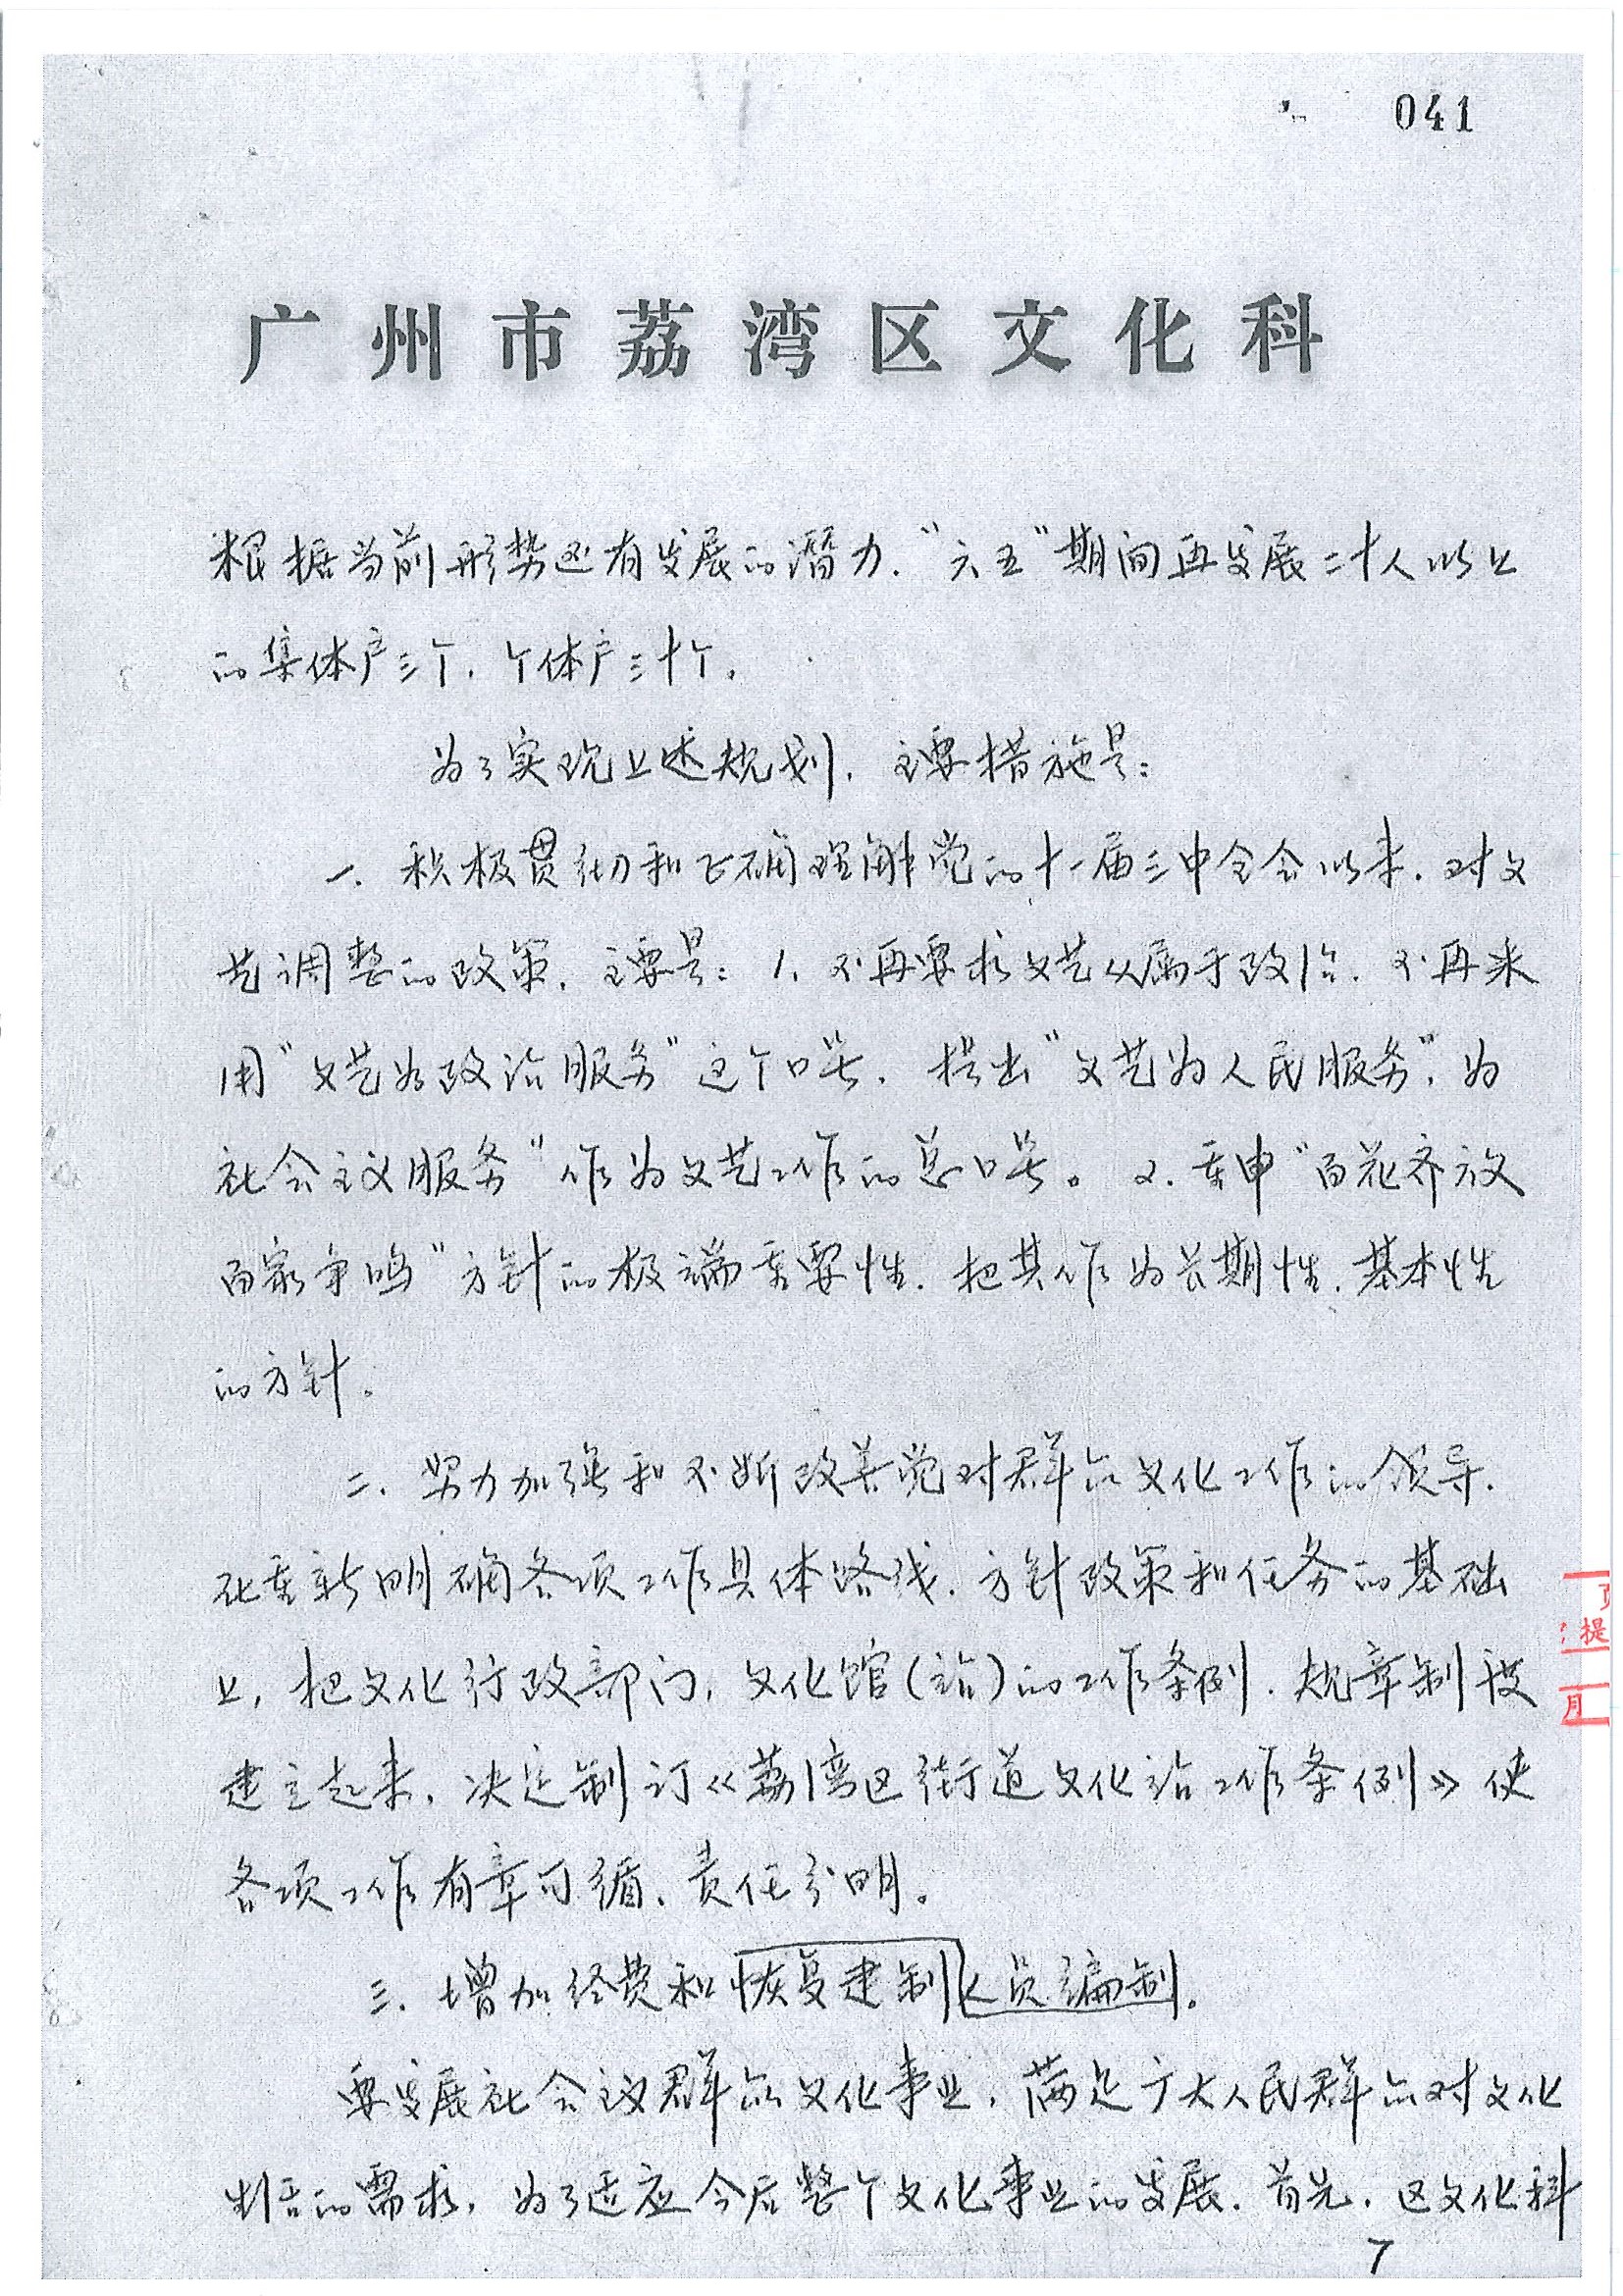 041
广州市荔湾区文化科
根据当前形势还有发展的潜力.“六五”期间再发展二十人以上
的集体户三个.个体户三十个.
为了实现上述规划.主要措施是:
一.积极贯彻和正确理解党的十一届三中全会以来.对文
艺调整的政策.主要是:1.不再要求文艺从属于政治.不再采
用“文艺为政治服务”这个口号.提出“文艺为人民服务”.为
社会主义服务”作为文艺工作的总口号。2.重申“百花齐放
百家争鸣”方针的极端重要性.把其作为长期性.基本性
的方针。
二.努力加强和不断改善党对群众文化工作的领导.
在重新明确各项工作具体路线.方针政策和任务的基础
上,把文化行政部门,文化馆(站)的工作条例.规章制度
建立起来,决定制订《荔湾区街道文化站工作条例》使
各项工作有章可循.责任分明。
三.增加经费和恢复建制人员编制.
要发展社会主义群众文化事业.满足广大人民群众对文化
生活的需求,为了适应今后整个文化事业的发展.首先.区文化科
7
提
月